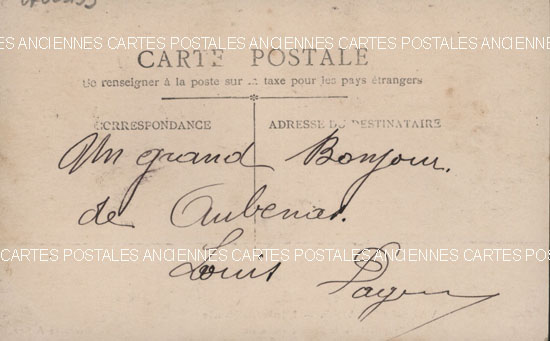 CARTES POSTALES ANCIENNES CARTES POSTALES ANCIENNES CARTES POSTALES
CARTE POSTALE
Se renseigner à la poste sur la taxe pour les pays étrangers
CORRESPONDANCE
ADRESSE DU DESTINATAIRE
Un grand Bonjour.
de Aubenas.
CARTES POSTALES ANCIENNES CARTES POSTALES ANCIENNES CARTES POSTALES
Louis